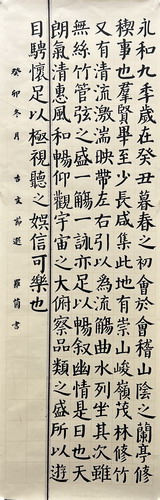 永和九年歲在癸丑暮春之初會於會稽山陰之蘭亭修
稧事也羣賢畢至少長咸集此地有崇山峻嶺茂林修竹
又有清流激湍映帶左右引以為流觴曲水列坐其次雖
無絲竹管弦之盛一觴一詠亦足以暢叙幽情是日也天
朗氣清惠風和暢仰觀宇宙之大俯察品類之盛所以遊
目騁懷足以極視聽之娛信可樂也
癸卯冬月 古文